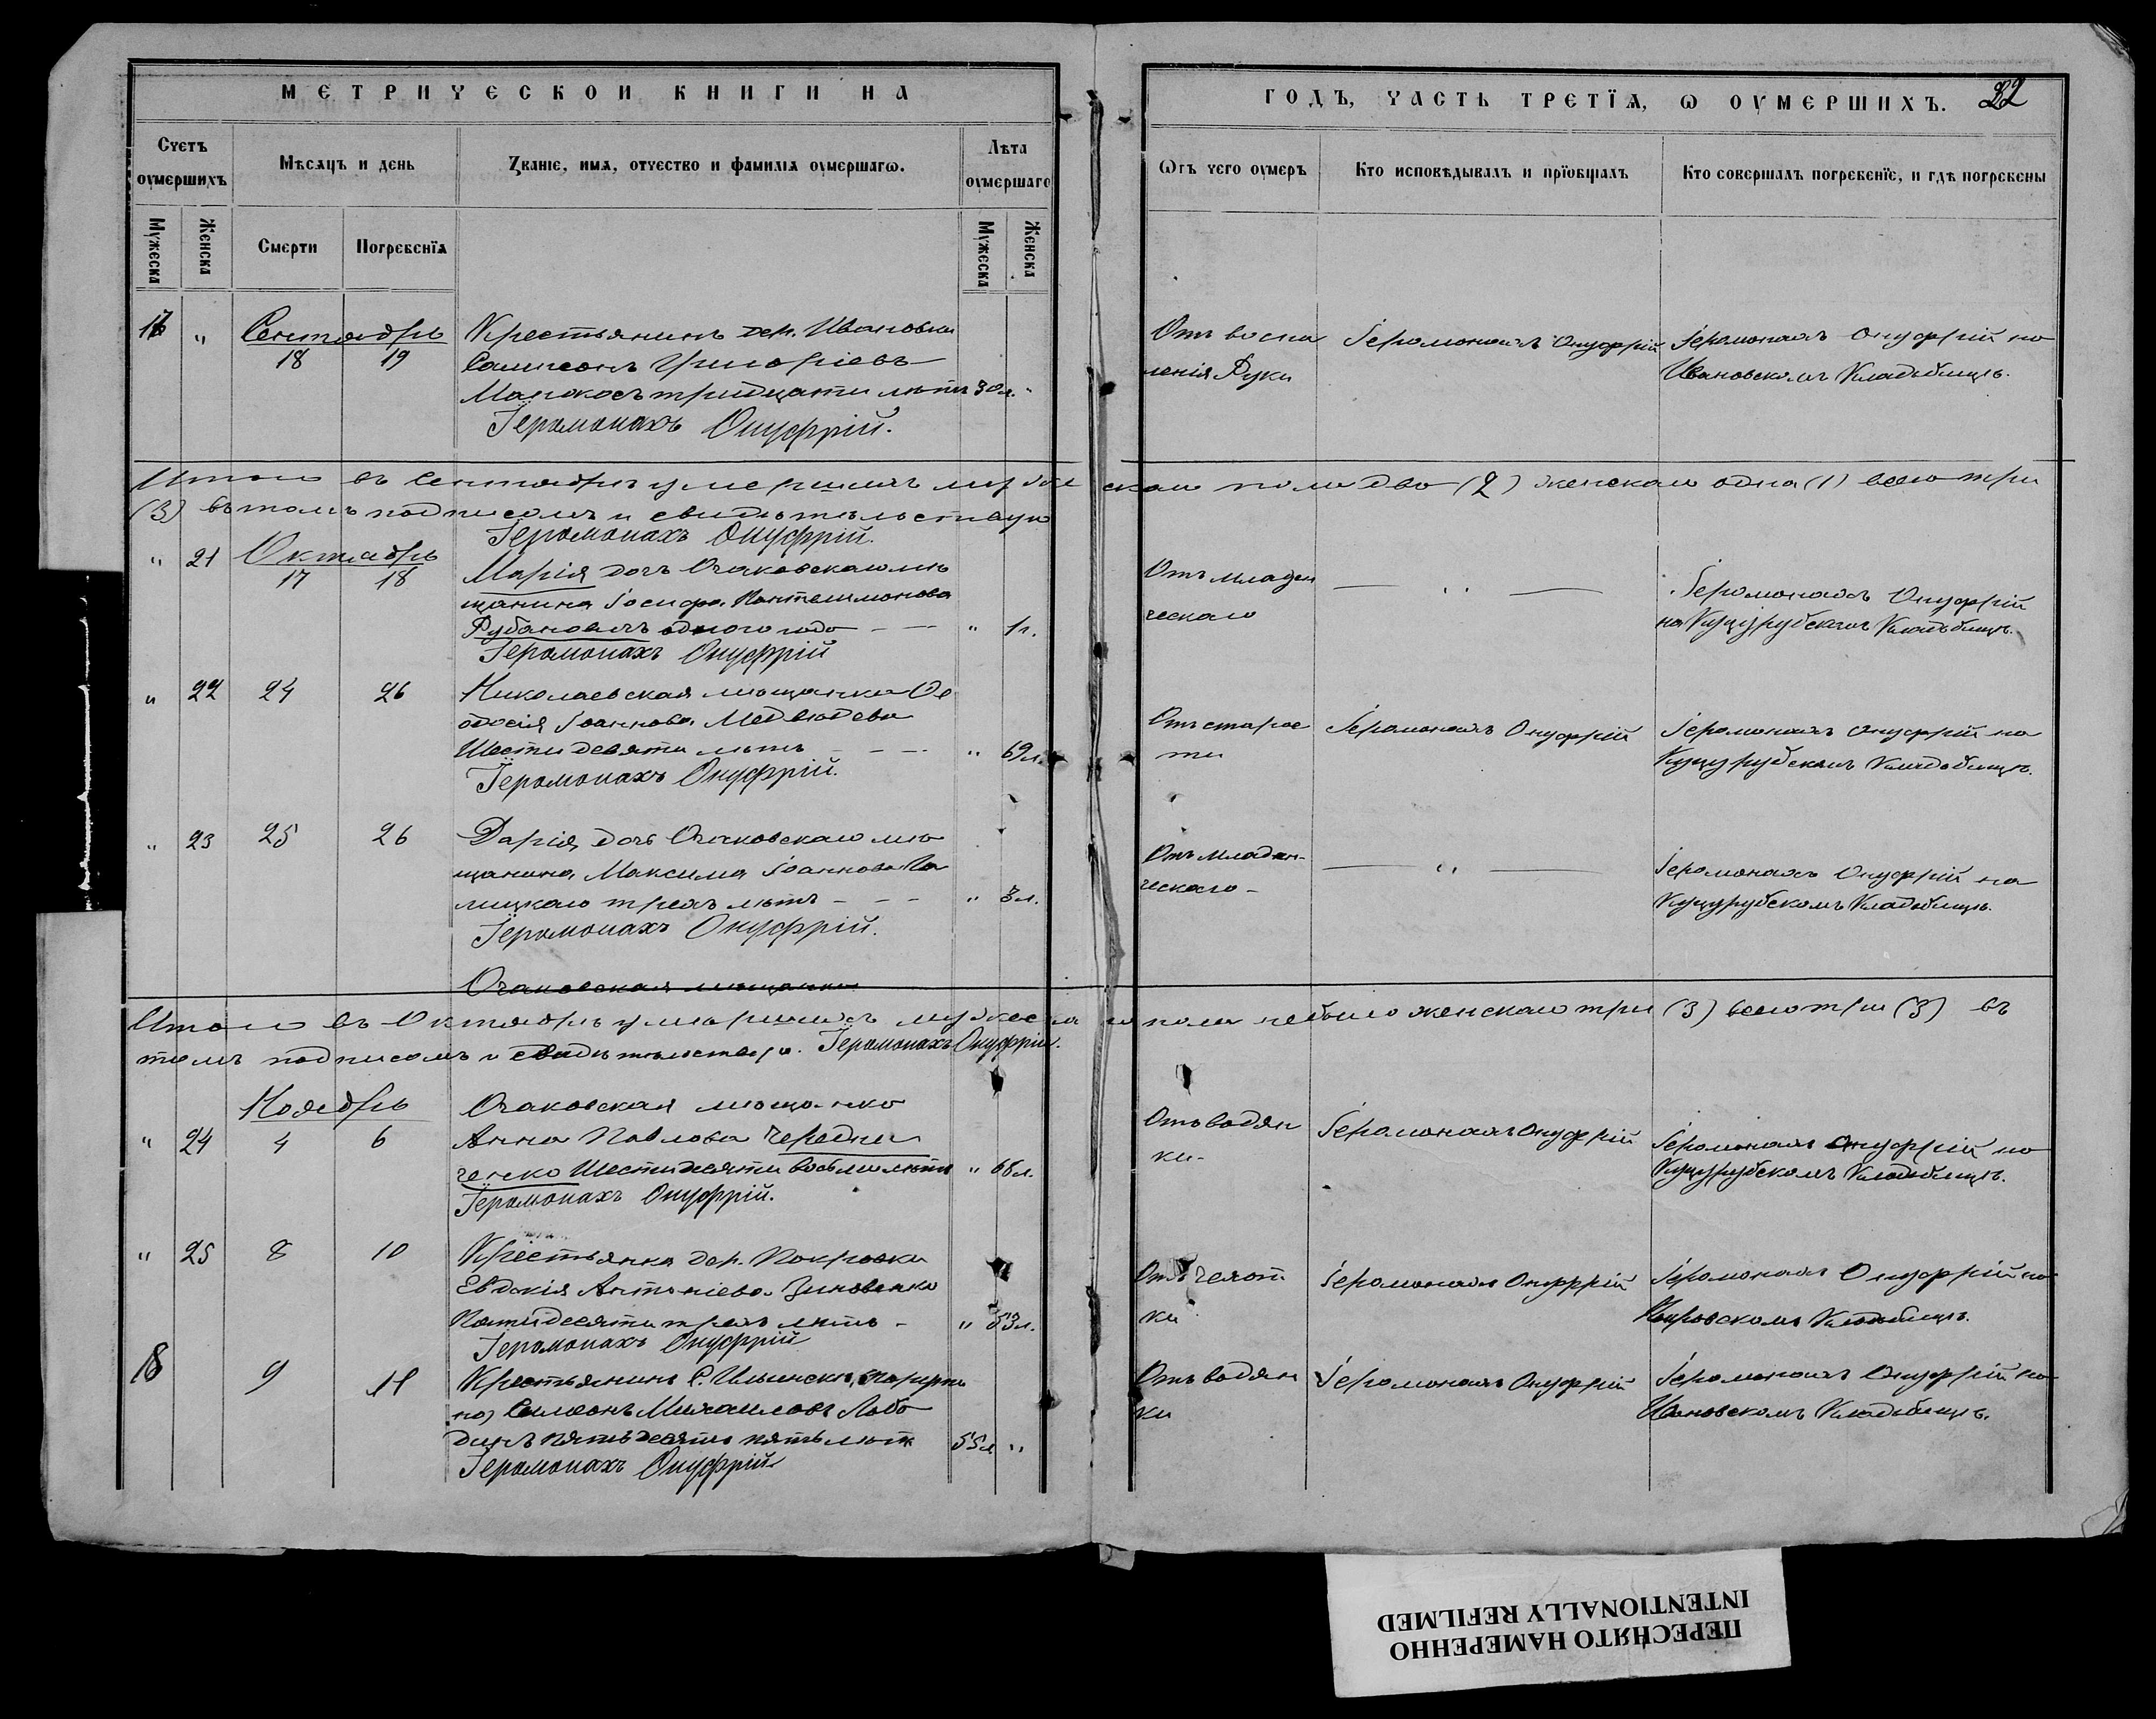 МЕТРИЧЕСКОЙ КНИГИ НА
ГОДЪ, ЧАСТЬ ТРЕТІЯ, Ѡ ОУМЕРШИХЪ. 22
Счетъ оумершихъ
Мѣсяцъ и день
Званіе, имя, отчество и фамилія оумершагѡ.
Лѣта оумершаго
Ѿъ чего оумеръ
Кто исповѣдывалъ и пріобщалъ
Кто совершалъ погребеніе, и гдѣ погребены
Мужеска
Женска
Смерти
Погребенія
Мужеска
Женска
17 " Сентябрь Крестьянинъ дер. Ивановки Отъ воспа Іеромонахъ Онуфрій Іеромонахъ Онуфрій на
18 19 Сампсонъ Григоріевъ ленія руки Ивановскомъ Кладбищѣ.
тридцати лѣтъ 30 л. "
Іеромонахъ Онуфрій.
Итого въ Сентябрѣ умершихъ мужескаго пола два (2) женскаго одна (1) всего три
(3) въ томъ подписомъ и свидѣтельствую
Іеромонахъ Онуфрій.
" 21 Октябрь Марія дочь Очаковскаго мѣ Отъ младен — " — Іеромонахъ Онуфрій
17 18 щанина Іосифа Пантелимонова ческаго на Куцурубскомъ Кладбищѣ.
Рубановичъ одного года — — " 1 г.
Іеромонахъ Онуфрій
" 22 24 26 Николаевская мѣщанка Ѳе Отъ старос Іеромонахъ Онуфрій Іеромонахъ Онуфрій на
одосія Іоаннова Медвѣдева ти Куцурубскомъ Кладбищѣ.
Шести девяти лѣтъ — — — " 69 л.
Іеромонахъ Онуфрій.
" 23 25 26 Дарія дочь Очаковскаго мѣ Отъ младен- — " — Іеромонахъ Онуфрій на
щанина Максима Іоаннова Га ческаго - Куцурубскомъ Кладбищѣ.
лицкаго трехъ лѣтъ — — — " 3 л.
Іеромонахъ Онуфрій.
Очаковская мѣщанка
Итого въ Октябрѣ умершихъ мужеска го пола небыло женскаго три (3) всего три (3) въ
томъ подписомъ и свидѣтельствую. Іеромонахъ Онуфрій.
Ноябрь Очаковская мѣщанка Отъ водян Іеромонахъ Онуфрій Іеромонахъ Онуфрій на
" 24 4 6 Анна Павлова Чередни ки - Куцурубскомъ Кладбищѣ.
ченко Шестидесяти восьми лѣтъ " 68 л.
Іеромонахъ Онуфрій.
" 25 8 10 Крестьянка дер. Покровки Отъ чахот Іеромонахъ Онуфрій Іеромонахъ Онуфрій на
Евдокія Антоніева Зиновенко ки Кладбищѣ.
Пятидесяти трехъ лѣтъ - " 53 л.
Іеромонахъ Онуфрій
18 9 11 Крестьянинъ С. Отъ водян Іеромонахъ Онуфрій Іеромонахъ Онуфрій на
Симеонъ Михаиловъ Лобо ки Ивановскомъ Кладбищѣ.
динъ пятьдесятъ пять лѣтъ 55 л "
Іеромонахъ Онуфрій
ПЕРЕСНЯТО НАМЕРЕННО
INTENTIONALLY REFILMED